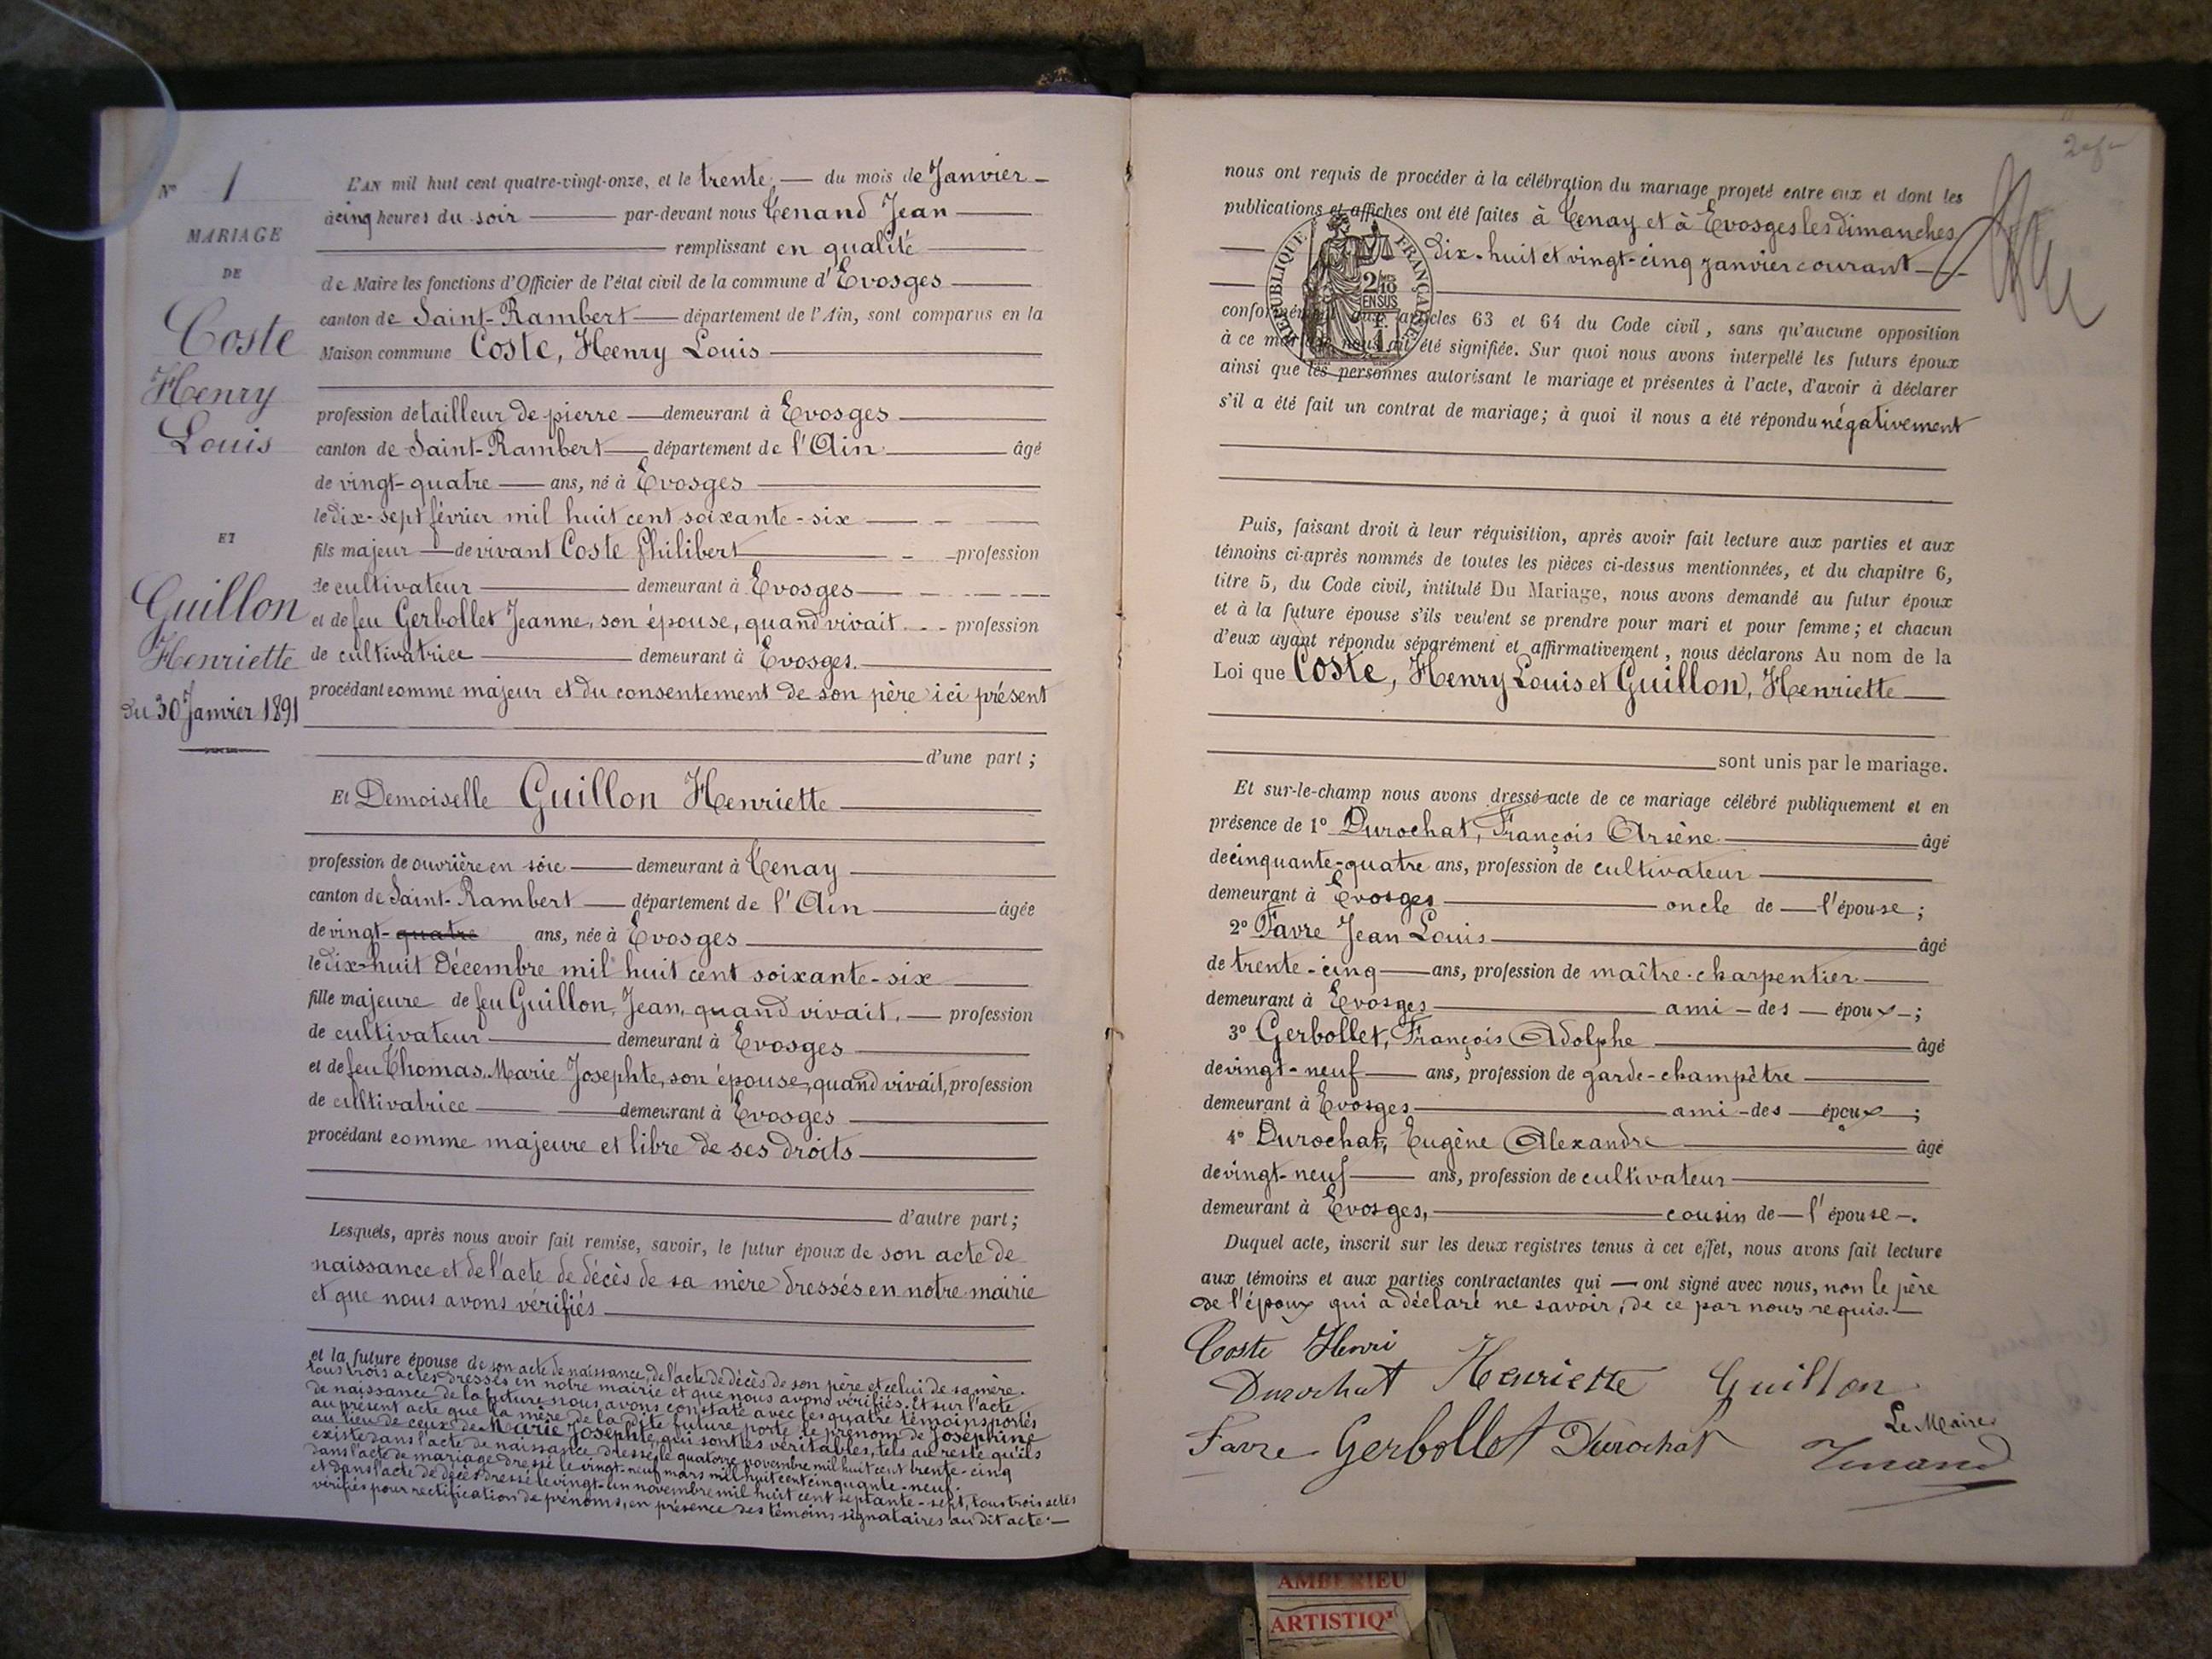 N° 1
MARIAGE
DE
Coste
Henry
Louis
ET
Guillon
Henriette
Du 30 Janvier 1891
L'AN mil huit cent quatre-vingt-onze, et le trente — du mois de Janvier —
à cinq heures du soir — par-devant nous Tenand Jean —
— remplissant en qualité —
de Maire les fonctions d'Officier de l'état civil de la commune d'Evosges —
canton de Saint-Rambert — département de l'Ain, sont comparus en la
Maison commune Coste, Henry Louis —
profession de tailleur de pierre — demeurant à Evosges —
canton de Saint-Rambert — département de l'Ain — âgé
de vingt-quatre — ans, né à Evosges —
le dix-sept février mil huit cent soixante-six —
fils majeur — de vivant Coste Philibert — profession
de cultivateur — demeurant à Evosges —
et de feu Gerbollet Jeanne, son épouse, quand vivait — profession
de cultivatrice — demeurant à Evosges. —
procédant comme majeur et du consentement de son père ici présent
— d'une part ;
Et Demoiselle Guillon Henriette —
profession de ouvrière en soie — demeurant à Tenay —
canton de Saint-Rambert — département de l'Ain — âgée
de vingt-quatre ans, née à Evosges —
le dix-huit Décembre mil huit cent soixante-six —
fille majeure de feu Guillon, Jean, quand vivait, — profession
de cultivateur — demeurant à Evosges —
et de feu Thomas Marie Josephte, son épouse, quand vivait, profession
de cultivatrice — demeurant à Evosges —
procédant comme majeure et libre de ses droits —
— d'autre part ;
Lesquels, après nous avoir fait remise, savoir, le futur époux de son acte de
naissance et de l'acte de décès de sa mère dressés en notre mairie
et que nous avons vérifiés —
et la future épouse de son acte de naissance, de l'acte de décès de son père et celui de sa mère.
tous trois actes dressés en notre mairie et que nous avons vérifiés. Et sur l'acte
de naissance de la future nous avons constaté avec les quatre témoins portés
au présent acte que la mère de la dite future porte le prénom de Joséphine
au lieu de ceux de Marie Josephte, qui sont les véritables, tels au reste qu'ils
existe dans l'acte de naissance dressé le quatorze novembre mil huit cent trente-cinq
dans l'acte de mariage dressé le vingt-neuf mars mil huit cent cinquante-neuf.
et dans l'acte de décès dressé le vingt-un novembre mil huit cent septante-sept, tous trois actes
vérifiés pour rectification de prénoms, en présence des témoins signataires au dit acte. —
nous ont requis de procéder à la célébration du mariage projeté entre eux et dont les
publications et affiches ont été faites à Tenay et à Evosges les dimanches
dix-huit et vingt-cinq janvier courant —
RÉPUBLIQUE FRANÇAISE
2/10
EN SUS
conformément aux articles 63 et 64 du Code civil, sans qu'aucune opposition
à ce mariage nous ait été signifiée. Sur quoi nous avons interpellé les futurs époux
ainsi que les personnes autorisant le mariage et présentes à l'acte, d'avoir à déclarer
s'il a été fait un contrat de mariage; à quoi il nous a été répondu négativement
Puis, faisant droit à leur réquisition, après avoir fait lecture aux parties et aux
témoins ci-après nommés de toutes les pièces ci-dessus mentionnées, et du chapitre 6,
titre 5, du Code civil, intitulé Du Mariage, nous avons demandé au futur époux
et à la future épouse s'ils veulent se prendre pour mari et pour femme; et chacun
d'eux ayant répondu séparément et affirmativement, nous déclarons Au nom de la
Loi que Coste, Henry Louis et Guillon, Henriette —
— sont unis par le mariage.
Et sur-le-champ nous avons dressé acte de ce mariage célébré publiquement et en
présence de 1° Durochat, François Arsène — âgé
de cinquante-quatre ans, profession de cultivateur —
demeurant à Evosges — oncle de — l'épouse ;
2° Favre Jean Louis — âgé
de trente-cinq — ans, profession de maître-charpentier —
demeurant à Evosges — ami — des — époux — ;
3° Gerbollet, François Adolphe — âgé
de vingt-neuf — ans, profession de garde-champêtre —
demeurant à Evosges — ami — des — époux — ;
4° Durochat, Eugène Alexandre — âgé
de vingt-neuf — ans, profession de cultivateur —
demeurant à Evosges, — cousin de — l'épouse —.
Duquel acte, inscrit sur les deux registres tenus à cet effet, nous avons fait lecture
aux témoins et aux parties contractantes qui — ont signé avec nous, non le père
de l'époux qui a déclaré ne savoir, de ce par nous requis. —
Coste Henri
Durochat Henriette Guillon
Le Maire
Favre Gerbollet Durochat Tenand
AMBERIEU
ARTISTIQ